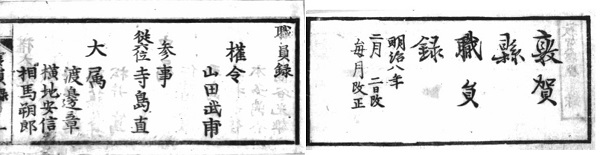 敦賀
縣
職員
録
明治八年
二月二日改
每月改正
職員録
權令
山田武甫
参事
從六位寺島直
大属
渡邊章
横地安信
相馬朔郎